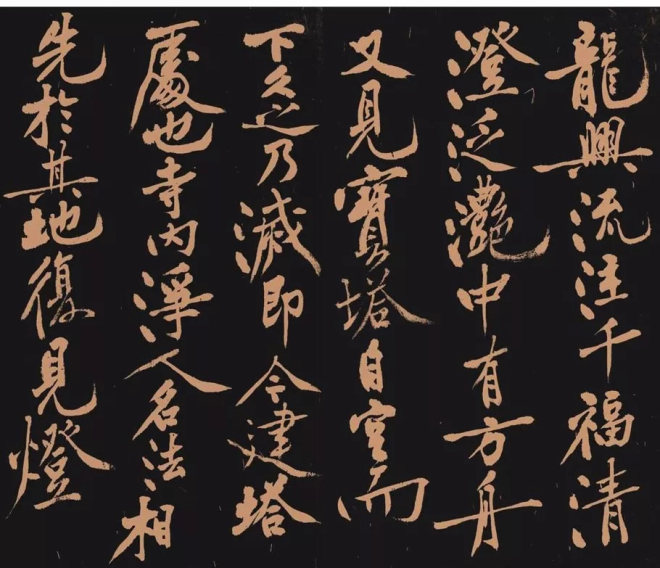 龍興流注千福清
澄泛灔中有方舟
又見寶塔自空而
下久之乃滅即今建塔
處也寺內淨人名法相
先於其地復見燈